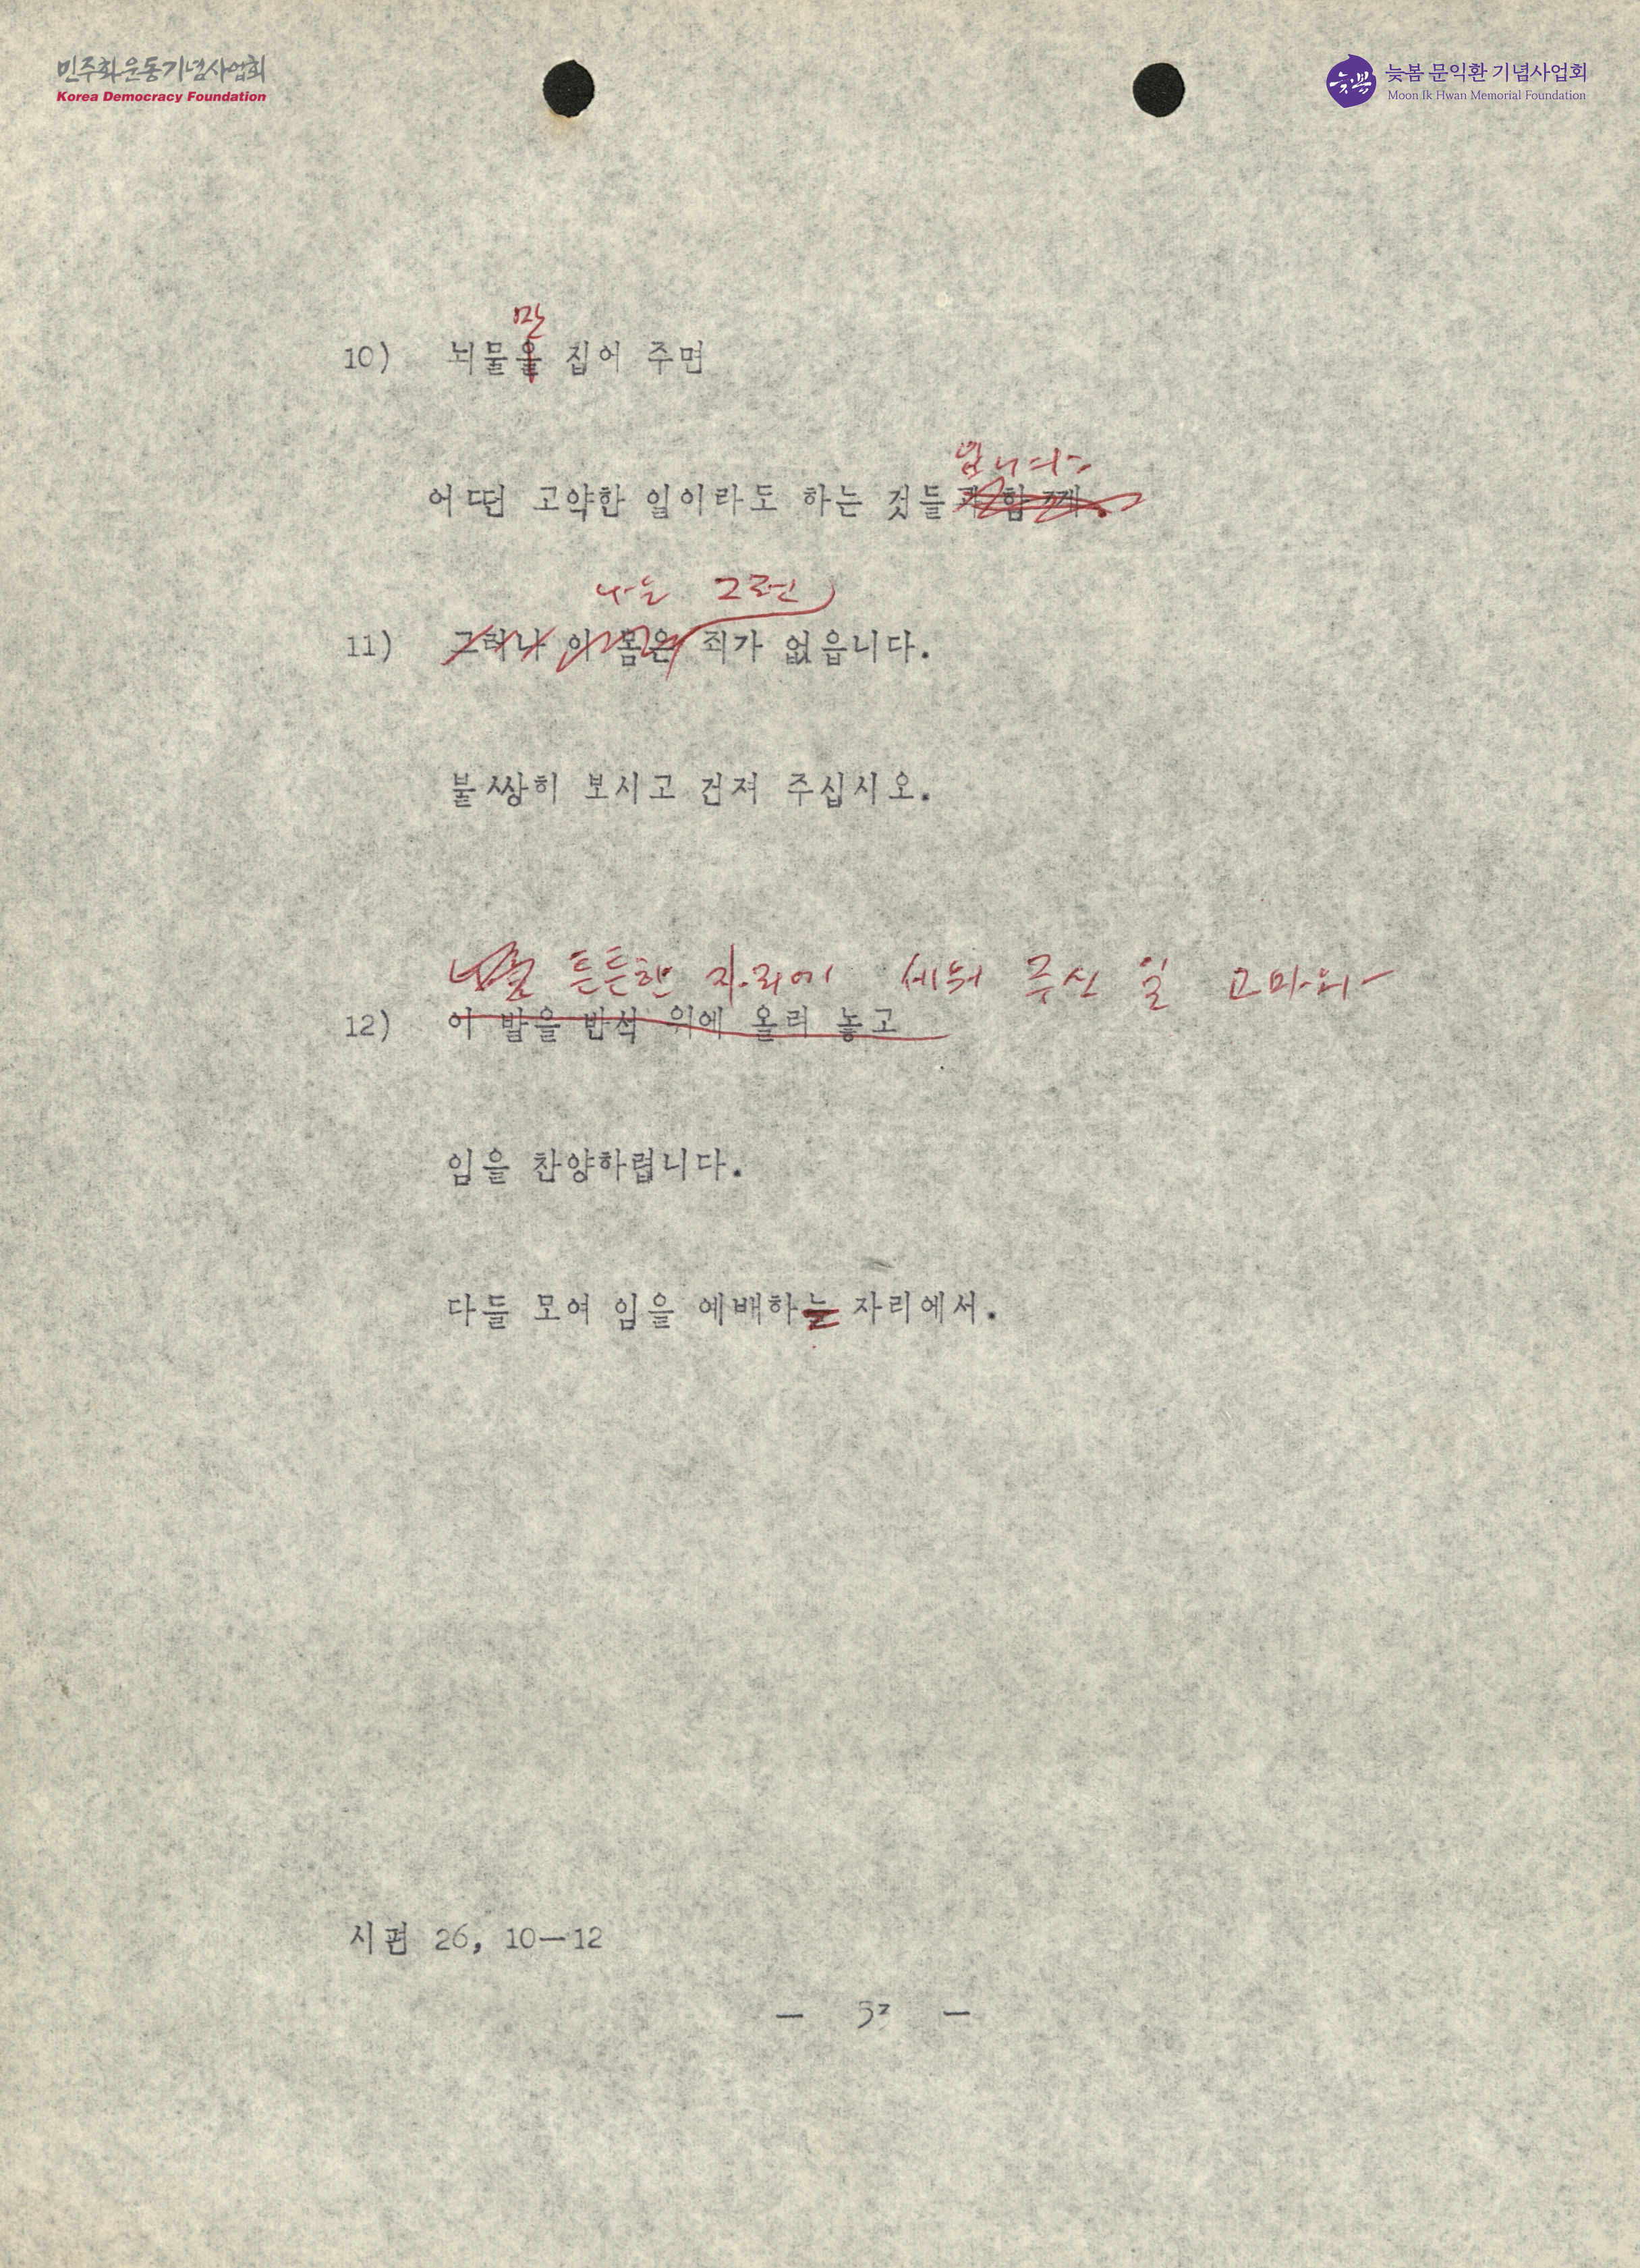 민주화운동기념사업회
Korea Democracy Foundation
늦봄
늦봄 문익환 기념사업회
Moon Ik Hwan Memorial Foundation
만
10) 뇌물을 집어 주면
입니다
어떤 고약한 일이라도 하는 것들과 함께.
나는 그런
11) 그러나 이 몸은 죄가 없읍니다.
불쌍히 보시고 건져 주십시오.
튼튼한 자리에 세워 주신 일 고마와
12) 이 발을 반석 위에 올려 놓고
임을 찬양하렵니다.
다들 모여 임을 예배하는 자리에서.
시편 26, 10—12
— 57 —